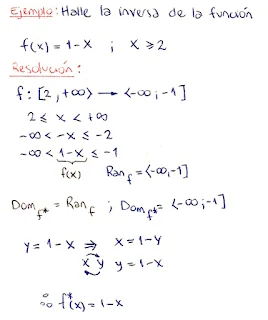 Ejemplo: Halle la inversa de la función
f(x) = 1-x ; x ≥ 2
Resolución:
f: [2, +∞⟩ → ⟨-∞; -1]
2 ≤ x < +∞
-∞ < -x ≤ -2
-∞ < 1-x ≤ -1
f(x) Ran_f = ⟨-∞; -1]
Dom_f* = Ran_f ; Dom_f* = ⟨-∞; -1]
y = 1-x ⇒ x = 1-y
x y y = 1-x
∴ f*(x) = 1-x